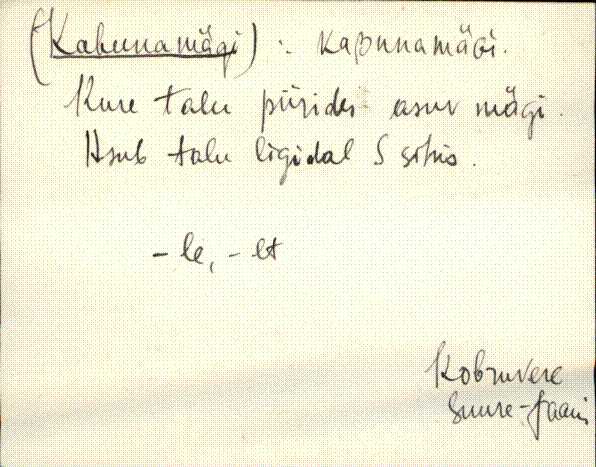 (Kabunamägi) :. kaʙunamäɢi.
Kure talu piirides asuv mägi.
Asub talu ligidal S sihis.
-le, -lt
Kobruvere
Suure-Jaani